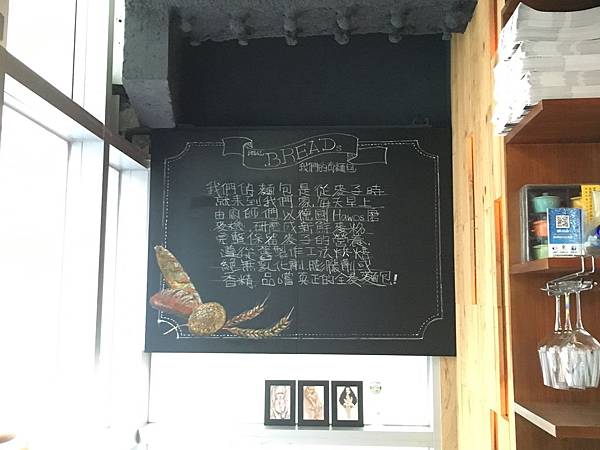 BREADs
我們的奇麵包
我們的麵包是從麥子時
就來到我們家,每天早上
由廚師們以德國Hawos磨
麥機,研磨成新鮮麥粉
完整保留麥子的營養,
遵從舊製作工法烘焙
絕無乳化劑.膨脹劑或
香精,品嚐真正的全麥麵包!